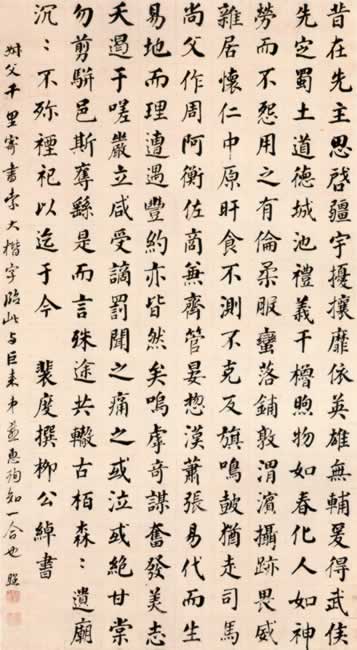 昔在先主思啓疆宇擾攘靡依英雄無輔爰得武侯
先定蜀土道德城池禮義干櫓煦物如春化人如神
勞而不怨用之有倫柔服蠻落鋪敦渭濱攝跡畏威
雜居懷仁中原旰食不測不克反旗鳴皷猶走司馬
尚父作周阿衡佐商兼齊管晏揔漢蕭張易代而生
易地而理遭遇豐約亦皆然矣嗚虖奇謀奮發美志
夭遏于嗟嚴立咸受謫罰聞之痛之或泣或絕甘棠
勿剪駢邑斯奪繇是而言殊途共轍古栢森:遺廟
沉:不殄禋祀以迄于今 裴度撰柳公綽書
父千里寄書索大楷字臨此与巨來 一合也 照